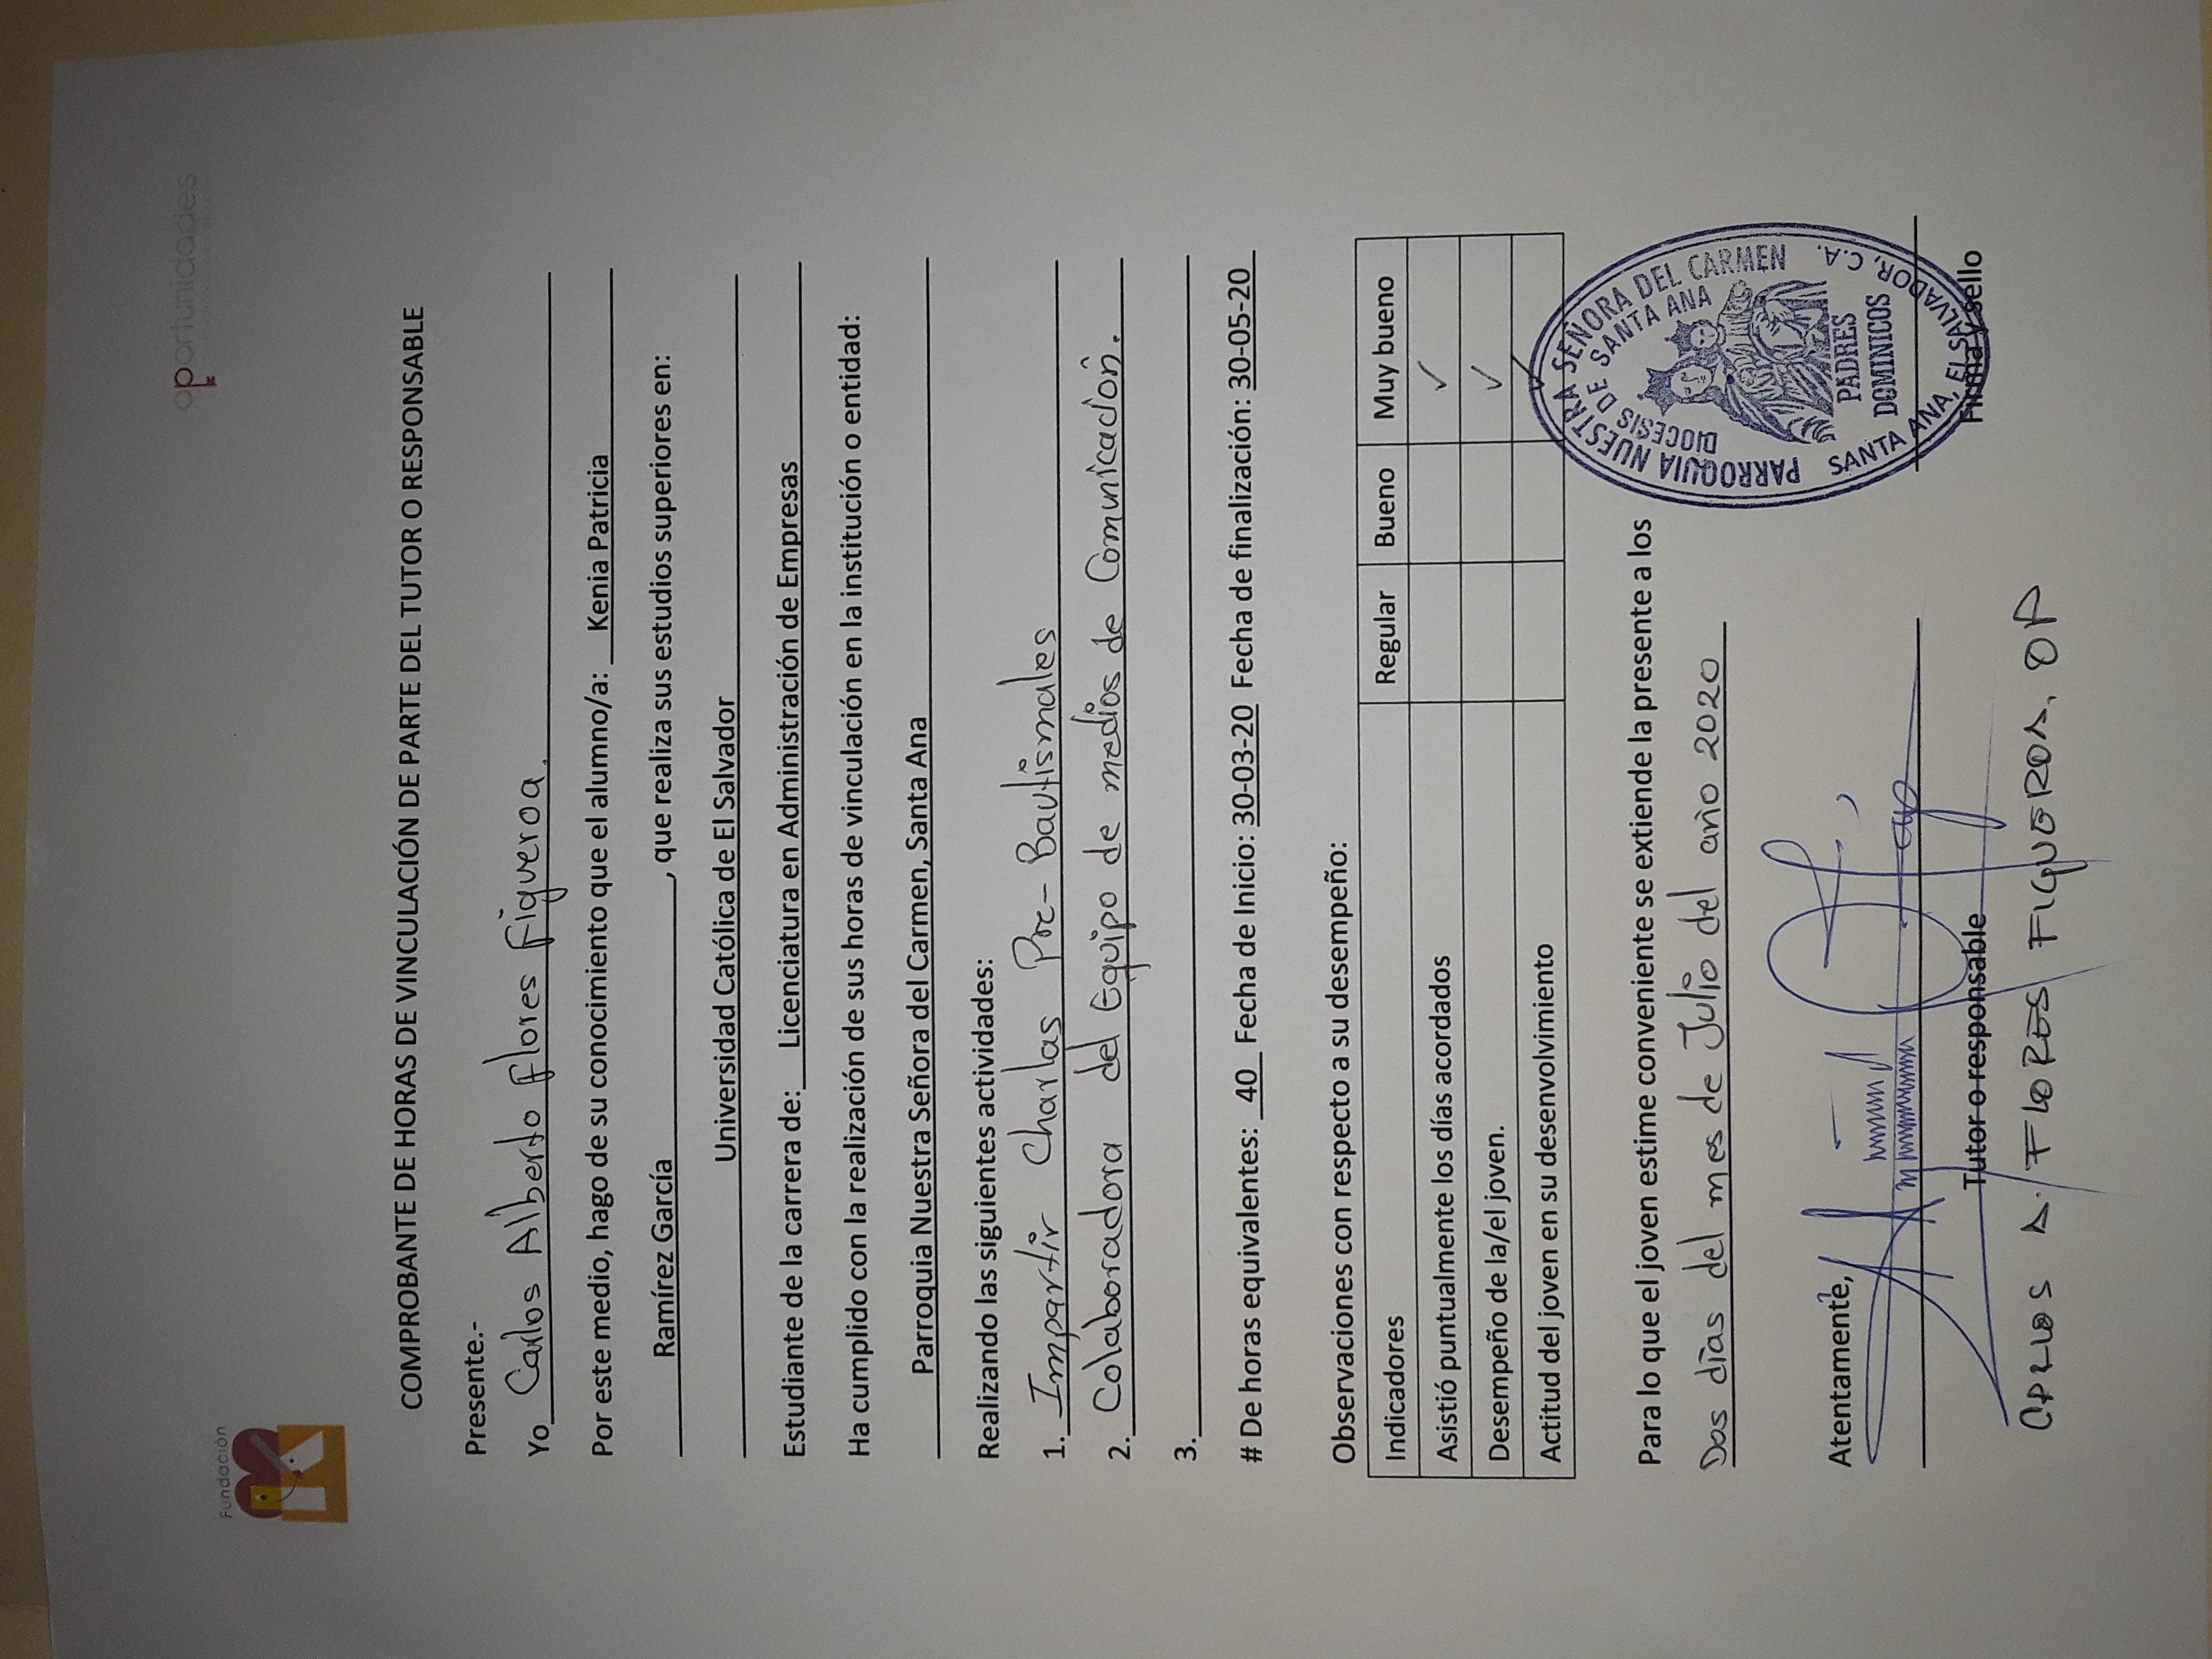 Fundación
oportunidades
COMPROBANTE DE HORAS DE VINCULACIÓN DE PARTE DEL TUTOR O RESPONSABLE
Presente.-
Yo Carlos Alberto Flores Figueroa.
Por este medio, hago de su conocimiento que el alumno/a: Kenia Patricia
Ramírez García, que realiza sus estudios superiores en:
Universidad Católica de El Salvador
Estudiante de la carrera de: Licenciatura en Administración de Empresas
Ha cumplido con la realización de sus horas de vinculación en la institución o entidad:
Parroquia Nuestra Señora del Carmen, Santa Ana
Realizando las siguientes actividades:
1. Impartir Charlas Pre-Bautismales
2. Colaboradora del Equipo de medios de Comunicación.
3.
# De horas equivalentes: 40 Fecha de Inicio: 30-03-20 Fecha de finalización: 30-05-20
Observaciones con respecto a su desempeño:
Indicadores Regular Bueno Muy bueno
Asistió puntualmente los días acordados ✓
Desempeño de la/el joven. ✓
Actitud del joven en su desenvolvimiento ✓
Para lo que el joven estime conveniente se extiende la presente a los
Dos días del mes de Julio del año 2020
PARROQUIA NUESTRA SEÑORA DEL CARMEN
DIOCESIS DE SANTA ANA
PADRES
DOMINICOS
SANTA ANA, EL SALVADOR, C.A.
Atentamente,
Tutor o responsable Firma y sello
CARLOS A. FLORES FIGUEROA, OP